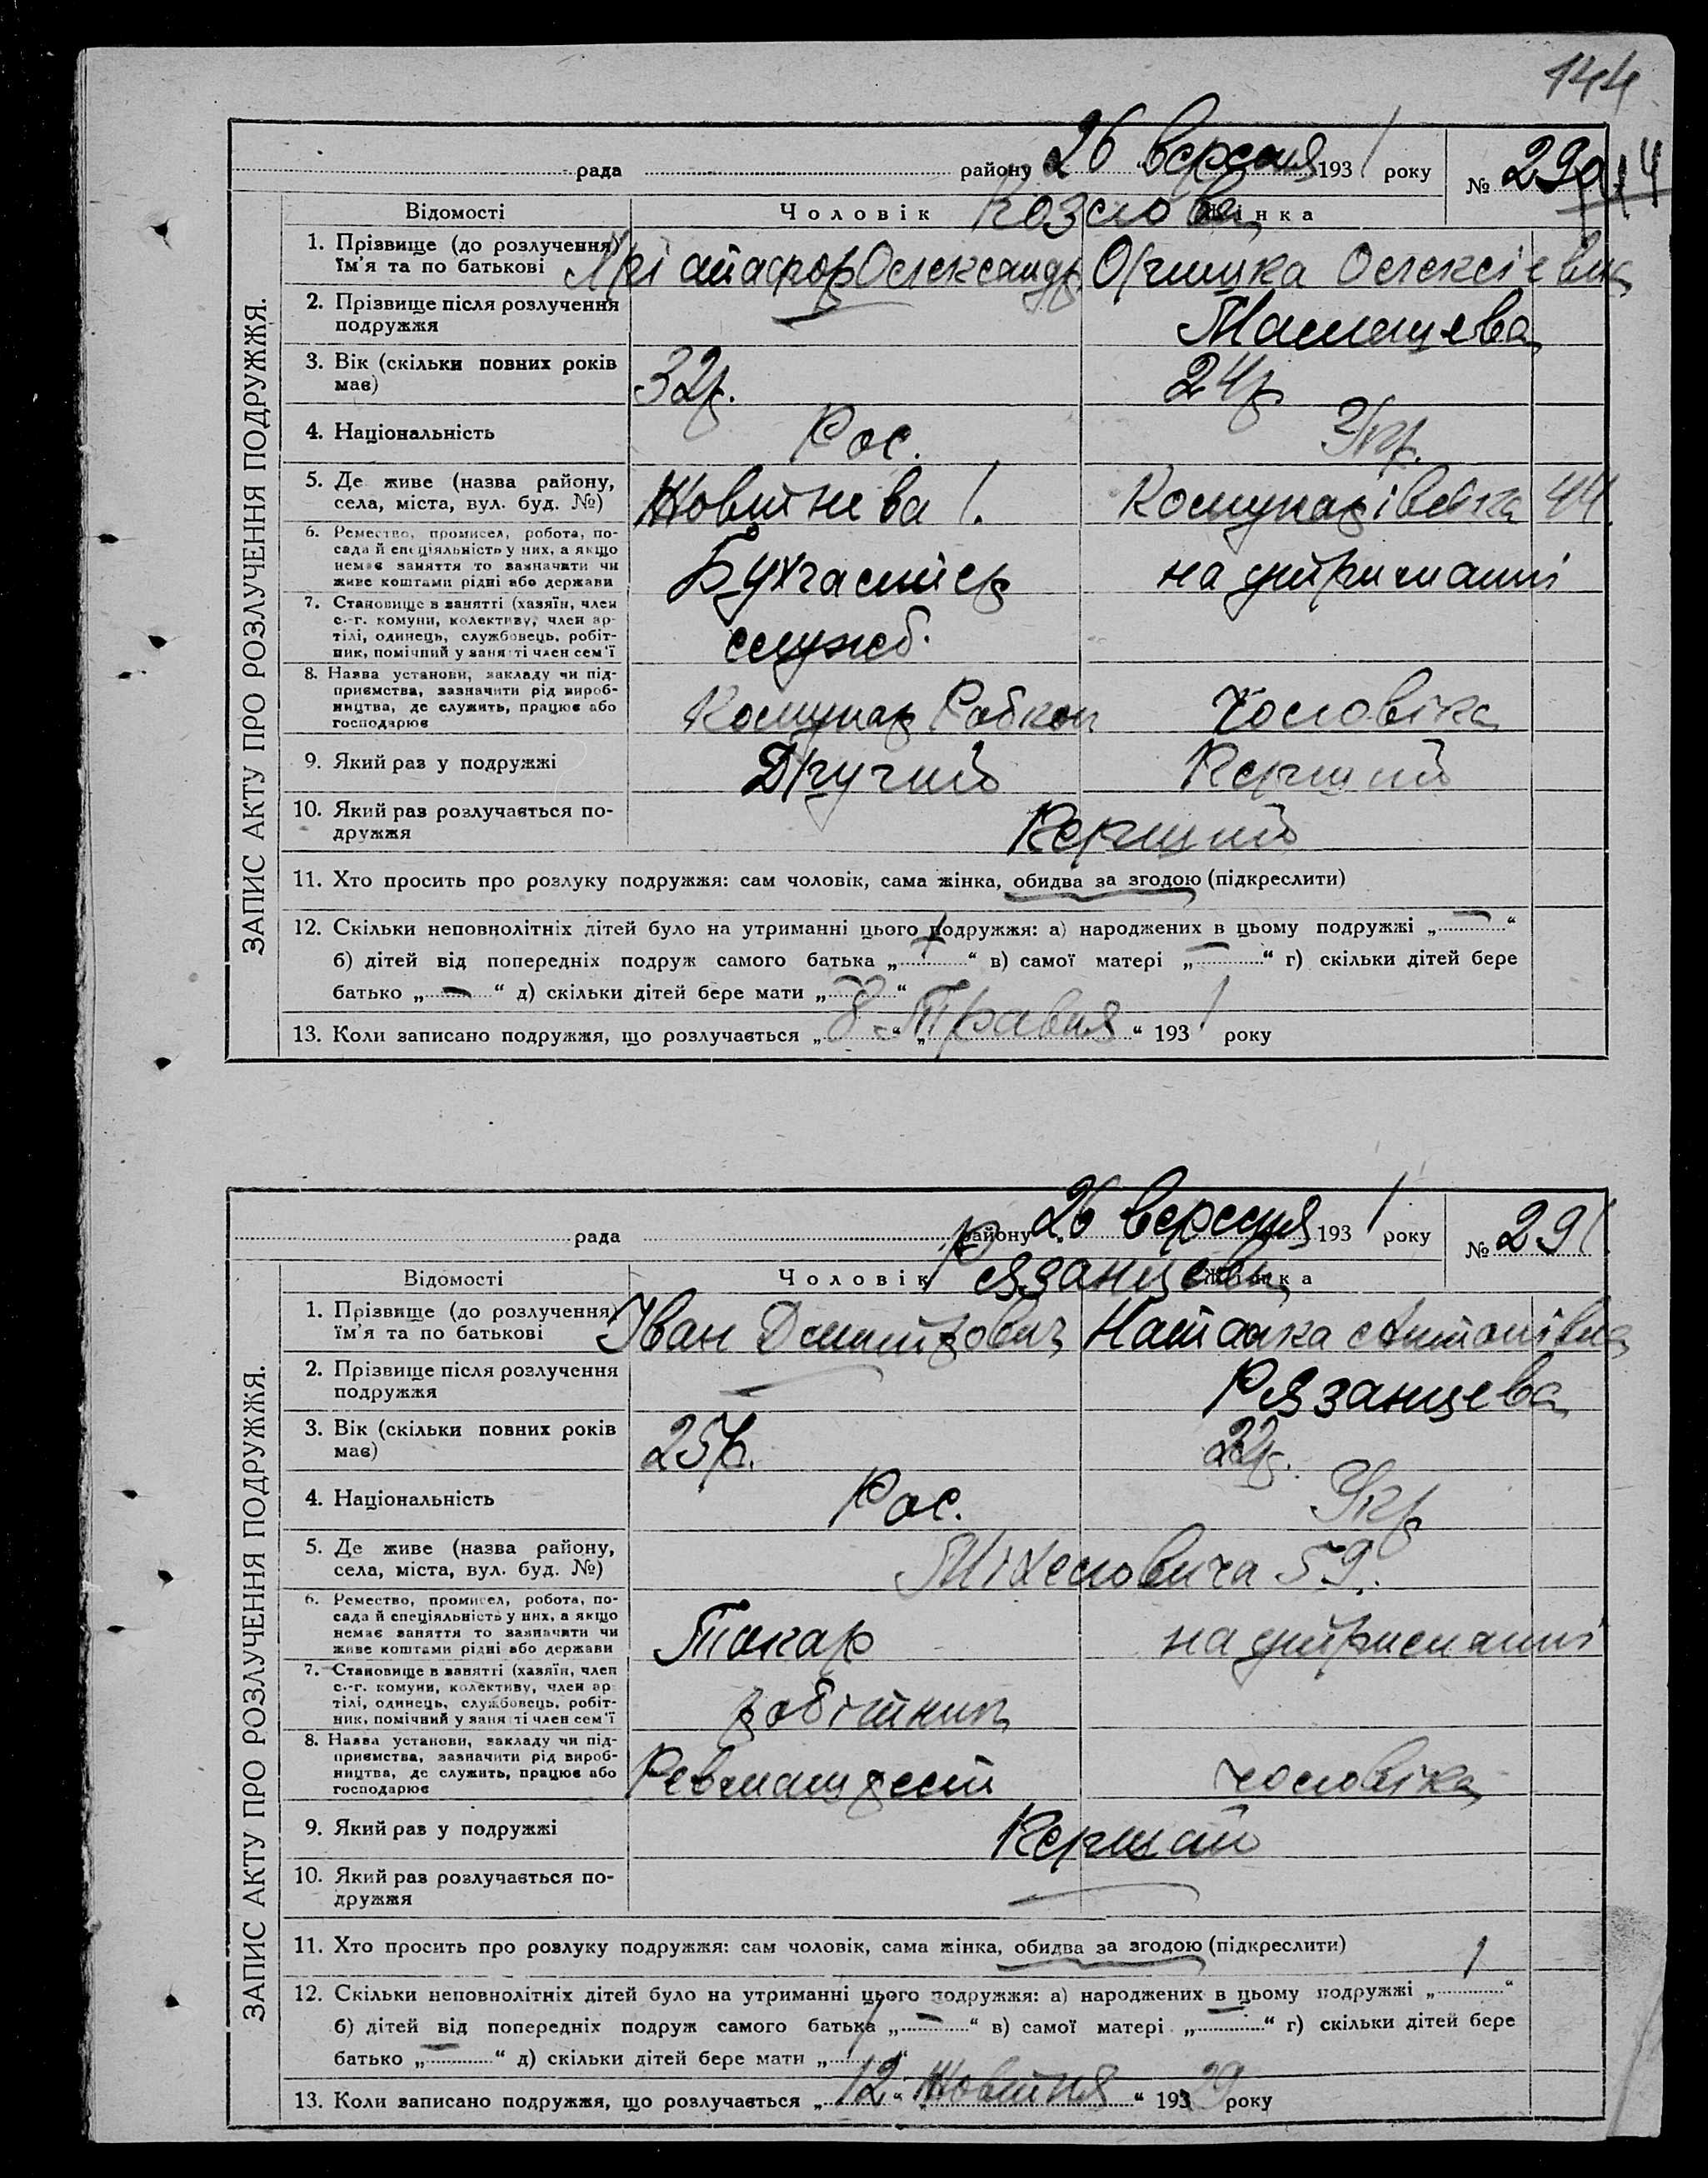 144
рада району 26 „вересня 1931 року № 290
Відомості Чоловік Жінка
Козлова
1. Прізвище (до розлучення)
ім'я та по батькові
Олександр Олексіївна
2. Прізвище після розлучення
подружжя
3. Вік (скільки повних років
має)
32р. 24р
4. Національність Рос. Укр.
5. Де живе (назва району,
села, міста, вул. буд. №)
Жовтнева 1. Комунарівська 44.
6. Ремество, промисел, робота, по-
сада й спеціяльність у них, а якщо
немає заняття то зазначити чи
живе коштами рідні або держави
Бухгалтер на утриманні
7. Становище в занятті (хазяїн, член
с.-г. комуни, колективу, член ар-
тілі, одинець, службовець, робіт-
ник, помічний у занятті член сем'ї
служб.
8. Назва установи, закладу чи під-
приємства, зазначити рід вироб-
ництва, де служить, працює або
господарює
Комунар Робкоп чоловіка
9. Який раз у подружжі Другий Перший
10. Який раз розлучається по-
дружжя
Перший
11. Хто просить про розлуку подружжя: сам чоловік, сама жінка, обидва за згодою (підкреслити)
12. Скільки неповнолітніх дітей було на утриманні цього подружжя: а) народжених в цьому подружжі „—“
б) дітей від попередніх подруж самого батька „1“ в) самої матері „—“ г) скільки дітей бере
батько „—“ д) скільки дітей бере мати „—“
13. Коли записано подружжя, що розлучається „8“ „Травня“ 1931 року
ЗАПИС АКТУ ПРО РОЗЛУЧЕННЯ ПОДРУЖЖЯ.
рада району „26 вересня 1931 року № 291
Відомості Чоловік Жінка
Рязанцеви
1. Прізвище (до розлучення)
ім'я та по батькові
Іван Дмитрович Наталка Антонівна
2. Прізвище після розлучення
подружжя
Рязанцева
3. Вік (скільки повних років
має)
25р. 22р.
4. Національність Рос. Укр
5. Де живе (назва району,
села, міста, вул. буд. №)
59.
6. Ремество, промисел, робота, по-
сада й спеціяльність у них, а якщо
немає заняття то зазначити чи
живе коштами рідні або держави
Токар на утриманні
7. Становище в занятті (хазяїн, член
с.-г. комуни, колективу, член ар-
тілі, одинець, службовець, робіт-
ник, помічний у занятті член сем'ї
робітник
8. Назва установи, закладу чи під-
приємства, зазначити рід вироб-
ництва, де служить, працює або
господарює
чоловіка
9. Який раз у подружжі Перший
10. Який раз розлучається по-
дружжя
11. Хто просить про розлуку подружжя: сам чоловік, сама жінка, обидва за згодою (підкреслити)
12. Скільки неповнолітніх дітей було на утриманні цього подружжя: а) народжених в цьому подружжі „1“
б) дітей від попередніх подруж самого батька „—“ в) самої матері „—“ г) скільки дітей бере
батько „—“ д) скільки дітей бере мати „1“
13. Коли записано подружжя, що розлучається „12“ „Жовтня“ 1929 року
ЗАПИС АКТУ ПРО РОЗЛУЧЕННЯ ПОДРУЖЖЯ.